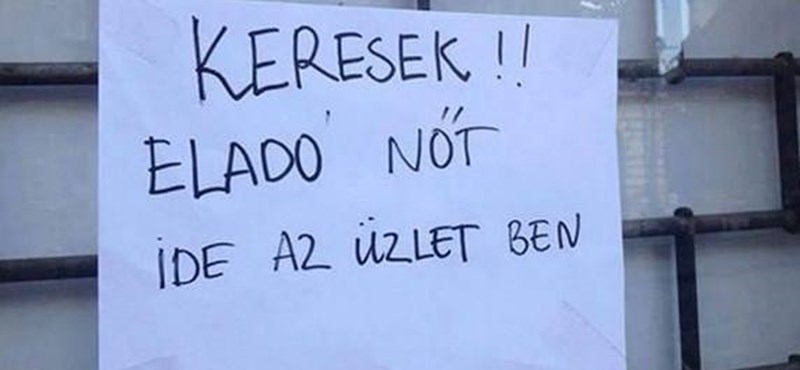 KERESEK !!
ELADÓ NŐT
iDE AZ ÜZLET BEN